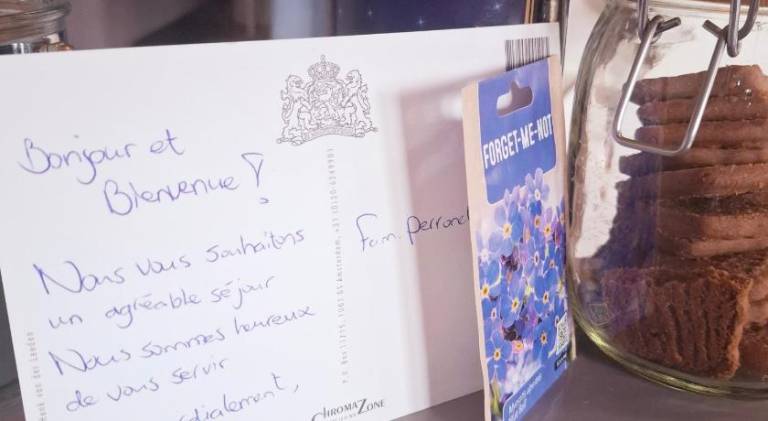 Bonjour et
Bienvenue !
Nous vous souhaitons
un agréable séjour
Nous sommes heureux
de vous servir
dialement,
Fam.
CHROMAZONE
FORGET-ME-NOT